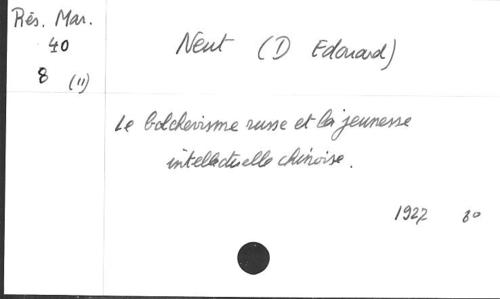 Rés. Mar.
40
8 (11)
Neut (D Edouard)
Le bolchevisme russe et la jeunesse
intellectuelle chinoise.
1927 8º